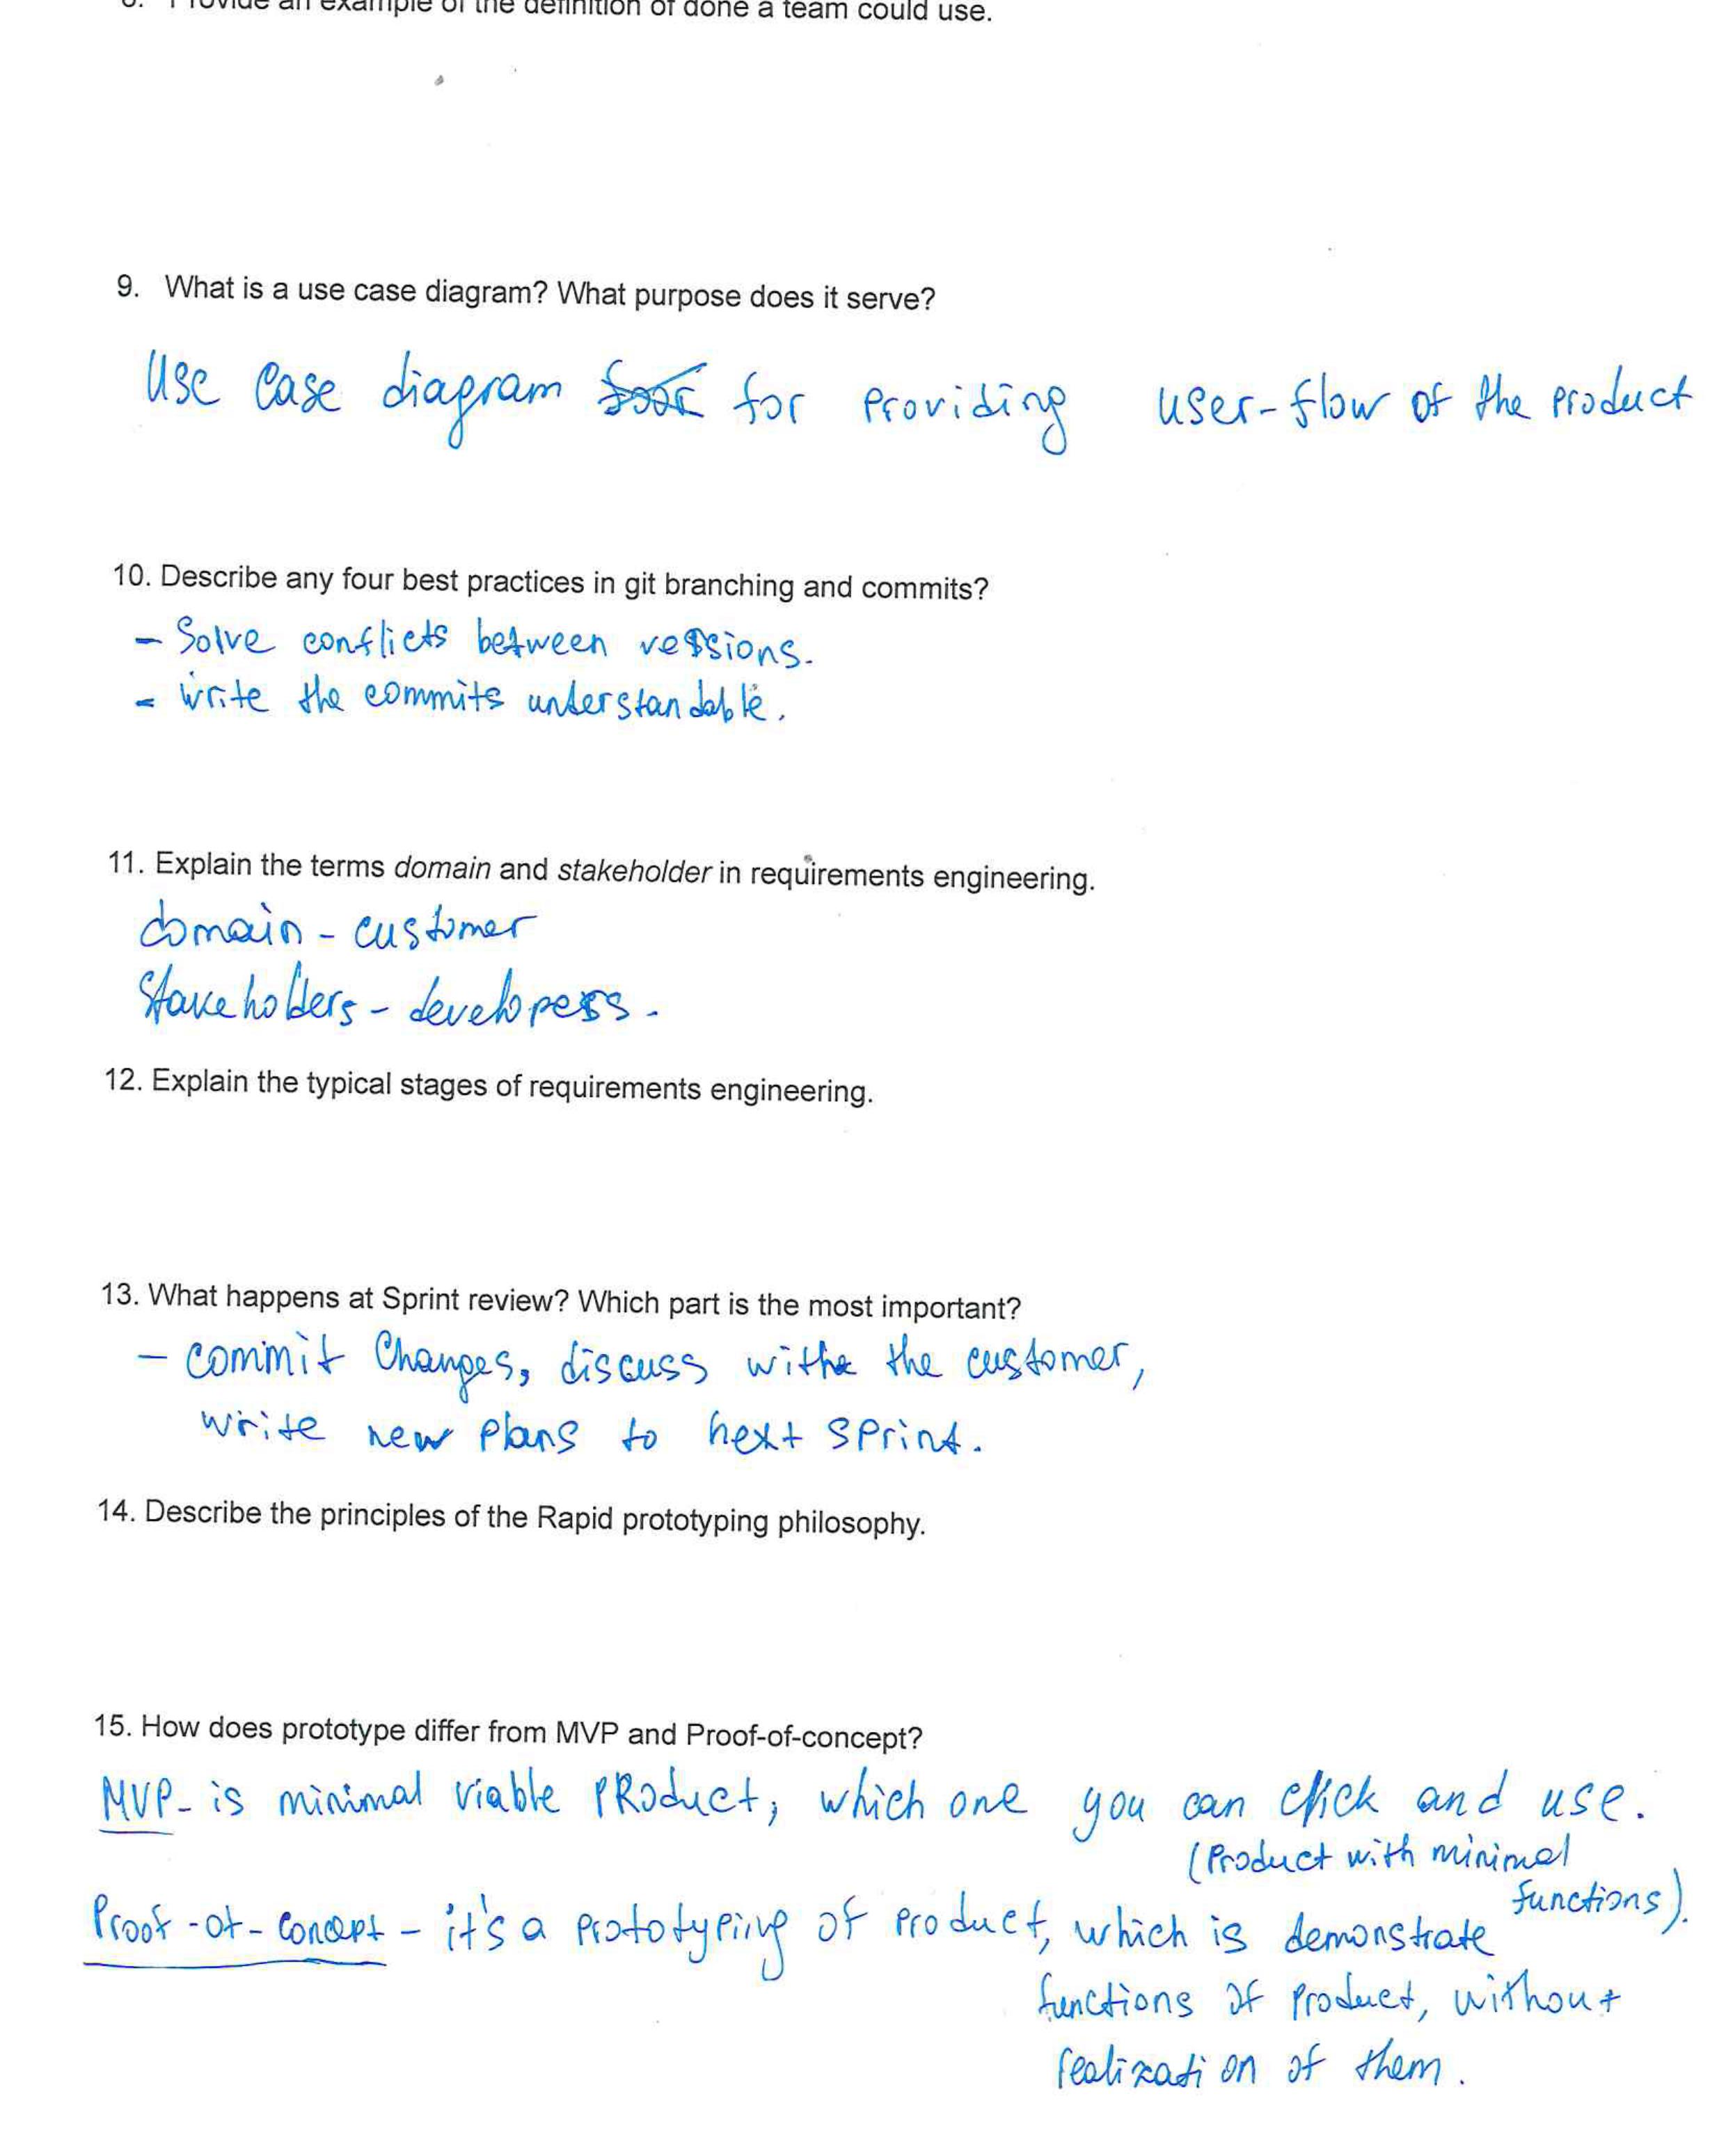 8. Provide an example of the definition of done a team could use.
9. What is a use case diagram? What purpose does it serve?
Use Case diagram for providing user-flow of the product
10. Describe any four best practices in git branching and commits?
- Solve conflicts between versions.
- write the commits understandable.
11. Explain the terms domain and stakeholder in requirements engineering.
domain - customer
Stakeholders - developers.
12. Explain the typical stages of requirements engineering.
13. What happens at Sprint review? Which part is the most important?
- commit Changes, discuss with the customer,
write new plans to next sprint.
14. Describe the principles of the Rapid prototyping philosophy.
15. How does prototype differ from MVP and Proof-of-concept?
MVP - is minimal viable PRoduct, which one you can click and use.
(Product with minimal
functions).
Proof-of-Concept - it's a prototyping of product, which is demonstrate
functions of product, without
realization of them.